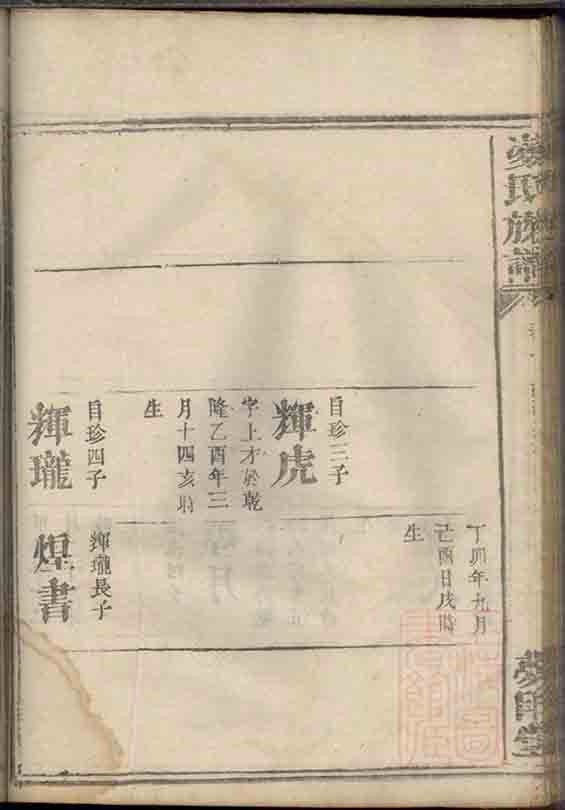 氏族譜
自珍三子
輝虎
字上才於乾
隆乙酉年三
月十四亥時
生
自珍四子
輝瓏
丁卯年九月
己酉日戌時
生
輝瓏長子
焜書
堂
海圖
書館